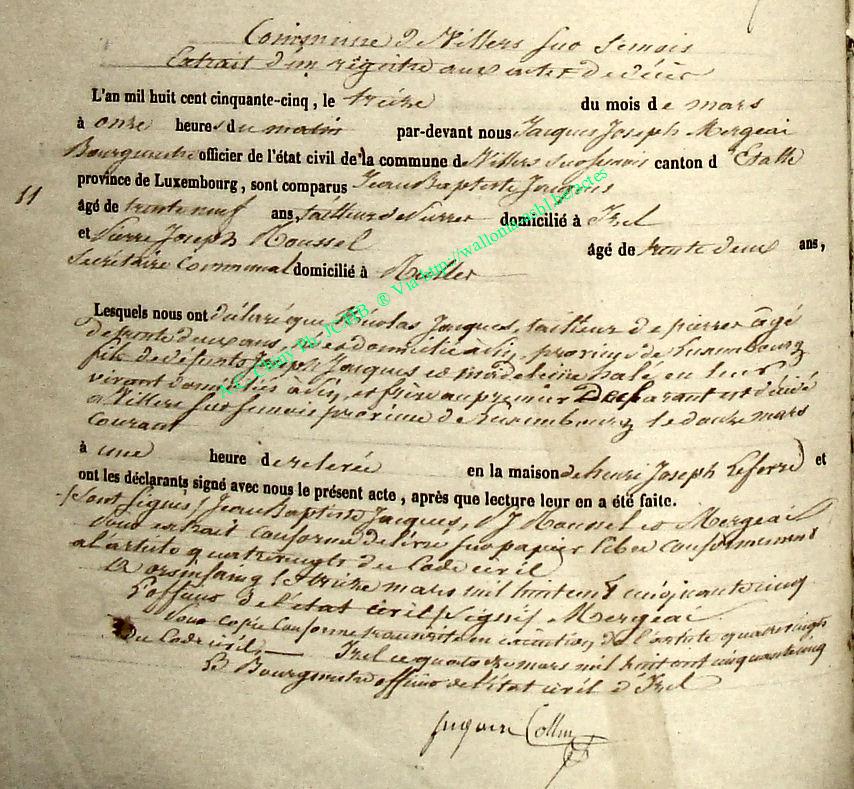 Commune de Villers sur Semois
Extrait d'un régistre aux actes de décès
L'an mil huit cent cinquante-cinq, le treize du mois de mars
à onze heures du matin par-devant nous Jacques Joseph Mergeai
Bourgmestre officier de l'état civil de la commune de Villers sur semois canton d'Etalle
province de Luxembourg, sont comparus Jean Baptiste Jacques
11
âgé de trente neuf ans, tailleur de Pierres domicilié à Izel
et Pierre Joseph Roussel âgé de trente deux ans,
Secrétaire Communal domicilié à
Lesquels nous ont déclaré que Nicolas Jacques, tailleur de pierres âgé
de trente deux ans, domicilié à province de Luxembourg
fils de défunts Joseph Jacques et madeleine halé en leur
vivant domiciliés à et frère au premier Déclarant est décédé
à Villers sur semois province de Luxembourg le douze mars
courant
à une heure de relevée en la maison de henri Joseph Leforre et
ont les déclarants signé avec nous le présent acte, après que lecture leur en a été faite.
Sont signés, Jean Baptiste Jacques, P J Roussel et Mergeai
Pour extrait conforme délivré sur papier libre conformément
à l'article quatrevingts du Code civil
A orsinfaing le treize mars mil huit cent cinquante cinq
L'officier de l'état civil (signé) Mergeai
Pour copie conforme transcrite en exécution de l'article quatrevingts
du Code civil, Izel ce quatorze mars mil huit cent cinquante cinq
Le Bourgmestre officier de l'état civil d'Izel
Collin
A.C. Chiny Ph. JC. HB. ® Via http://wallonia.asbl.be/actes